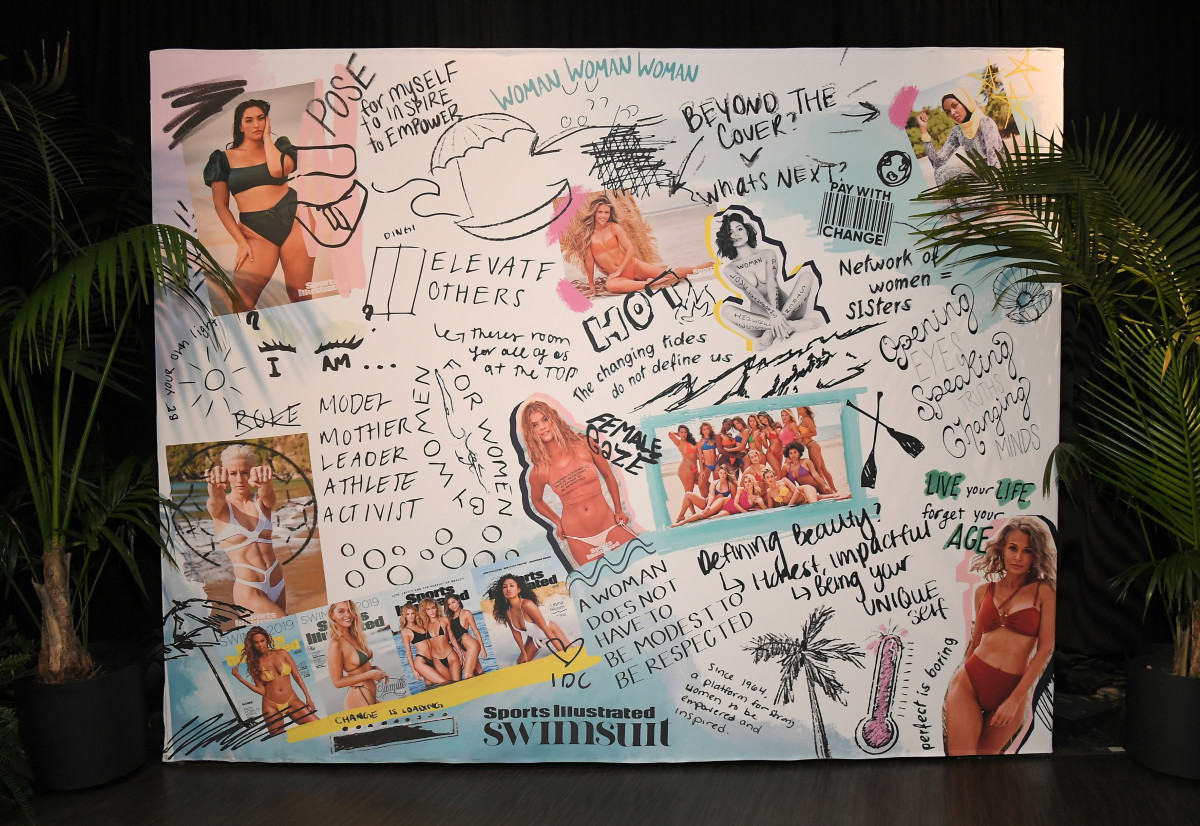 WOMAN WOMAN WOMAN
POSE
for MYSELF
to INSPIRE
to EMPOWER
BEYOND THE
COVER?
WHATS NEXT?
PAY WITH
CHANGE
DING!
ELEVATE
OTHERS
Network of
women =
SISters
HOT
WOMAN
Opening
EYES
Speaking
TRUTHS
Changing
MINDS
BE YOUR OWN light
I AM ...
Theres room
for all of us
at the TOP
The changing tides
do not define us
ROLE
MODEL
MOTHER
LEADER
ATHLETE
ACTIVIST
FOR WOMEN
BY WOMEN
FEMALE
GAZE
LIVE your LIFE
forget your
AGE
Defining Beauty?
Honest, Impactful
Being your
UNIQUE
self
A WOMAN
DOES NOT
HAVE TO
BE MODEST TO
BE RESPECTED
SWIMSUIT 2019
Sports
Illustrated
IDC
CHANGE IS LOADING
Sports Illustrated
swimsuit
Since 1964,
a platform for
women to be
empowered and
inspired.
perfect is boring